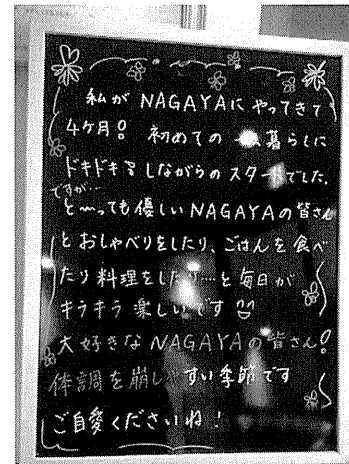 私が NAGAYAに やってきて
4ケ月! 初めての 暮らしに
ドキドキしながらのスタートでした。
ですが…
と〜っても優しいNAGAYAの皆さん
とおしゃべりをしたり、ごはんを食べ
たり料理をしたり…と毎日が
キラキラ楽しいです
大好きなNAGAYAの皆さん!
体調を崩し すい季節です
ご自愛くださいね!